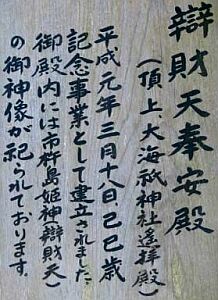 辯財天奉安殿
（頂上、大海祇神社遥拝殿）
平成元年三月十八日、己巳歳
記念事業として建立されました。
御殿内には市杵島姫神（辯財天）
の御神像が祀られております。